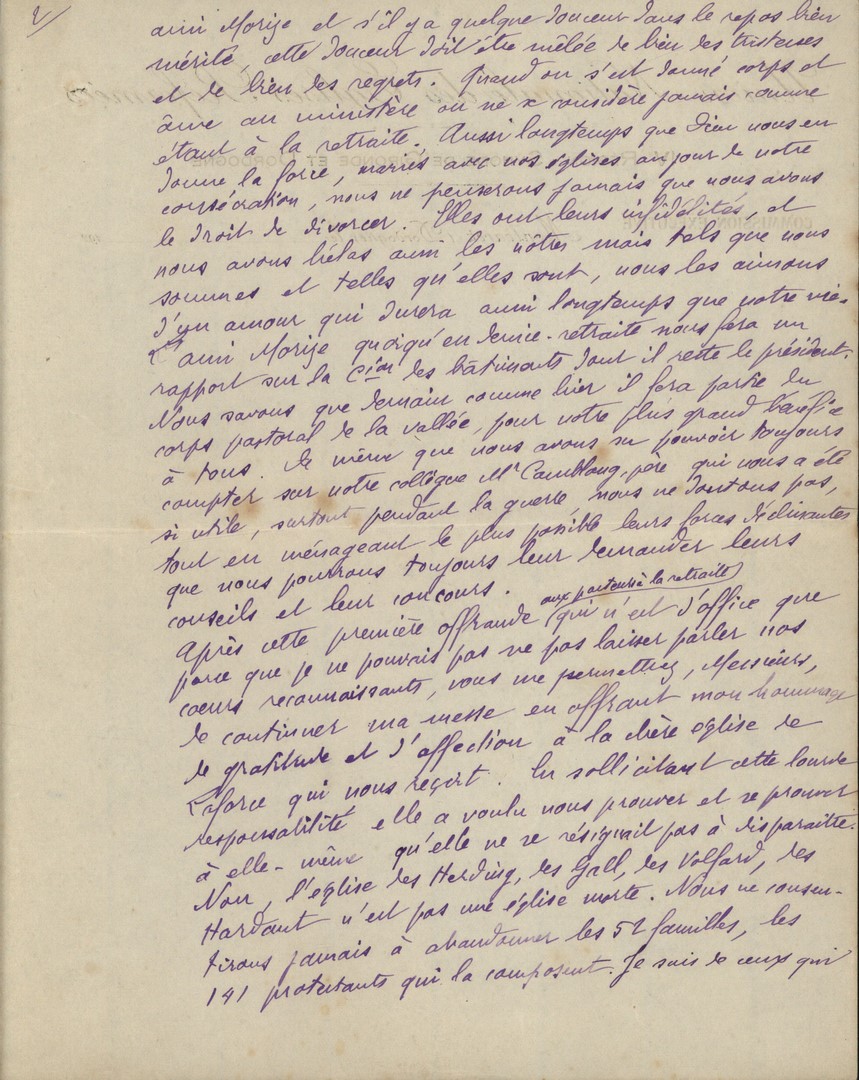 2/
ami Morize et s'il y a quelque douceur dans le repos bien
mérité, cette douceur doit être mêlée de bien des tristesses
et de bien des regrets. Quand on s'est donné corps et
âme au ministère on ne se considère jamais comme
étant à la retraite. Aussi longtemps que Dieu nous en
donne la force, mariés avec nos églises au jour de notre
consécration, nous ne penserons jamais que nous avons
le droit de divorcer. Elles ont leurs infidélités, et
nous avons hélas aussi les nôtres mais tels que nous
sommes et telles qu'elles sont, nous les aimons
d'un amour qui durera aussi longtemps que notre vie.
L'ami Morize quoiqu'en demie-retraite nous fera un
rapport sur la Cion des bâtiments dont il reste le président.
Nous savons que demain comme hier il fera partie du
corps pastoral de la vallée, pour notre plus grand bénéfice
à tous. De même que nous avons su pouvoir toujours
compter sur notre collègue Mr Camblong, père qui nous a été
si utile, surtout pendant la guerre, nous ne doutons pas,
tout en ménageant le plus possible leurs forces déclinantes
que nous pourrons toujours leur demander leurs
conseils et leur concours.
Après cette première offrande aux pasteurs à la retraite (qui n'est d'office que
parce que je ne pouvais pas ne pas laisser parler nos
coeurs reconnaissants, vous me permettrez, Messieurs,
de continuer ma messe en offrant mon hommage
de gratitude et d'affection à la chère église de
Laforce qui nous reçoit. En sollicitant cette lourde
responsabilité elle a voulu nous prouver et se prouver
à elle-même qu'elle ne se résignait pas à disparaître.
Non, l'église des Herding, des Gall, des Volfard, des
Hardant n'est pas une église morte. Nous ne consen-
tirons jamais à abandonner les 52 familles, les
141 protestants qui la composent. Je suis de ceux qui